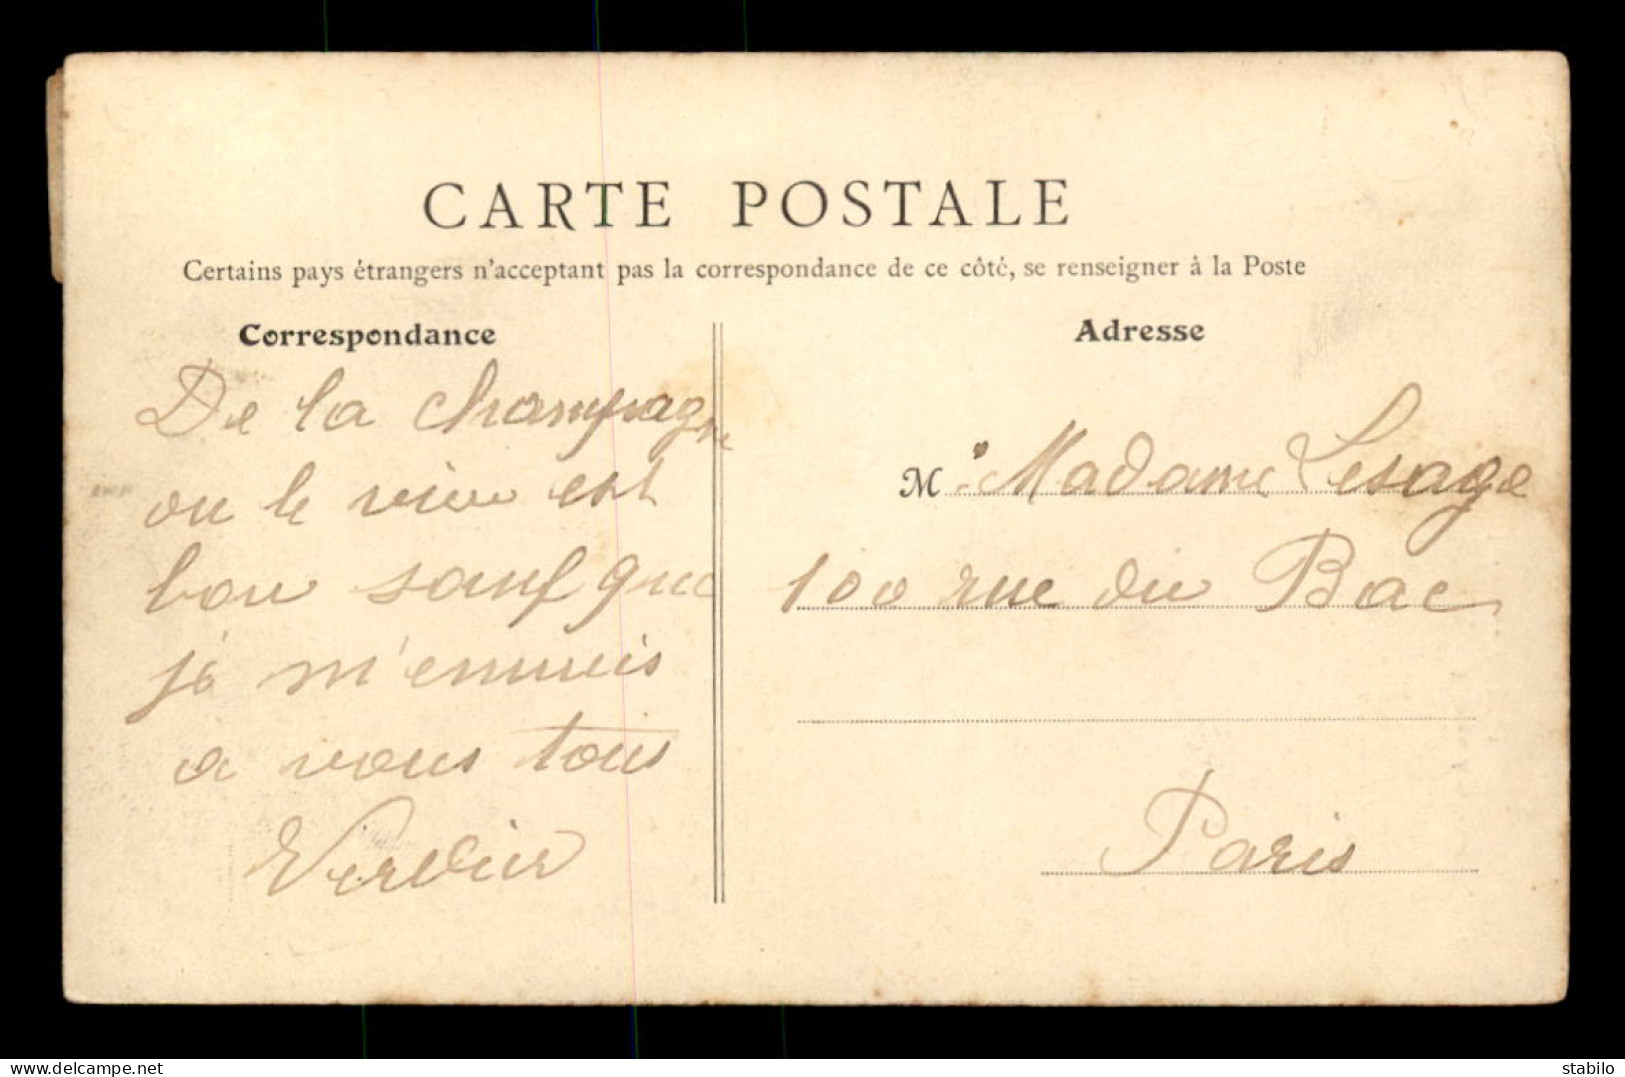 CARTE POSTALE
Certains pays étrangers n'acceptent pas la correspondance de ce côté, se renseigner à la Poste
Correspondance
De la champagne
ou le vin est
bon sauf que
je m'ennuis
a vous tous
Verdier
Adresse
M Madame Lesage
100 rue du Bac
Paris
www.delcampe.net
stabilo